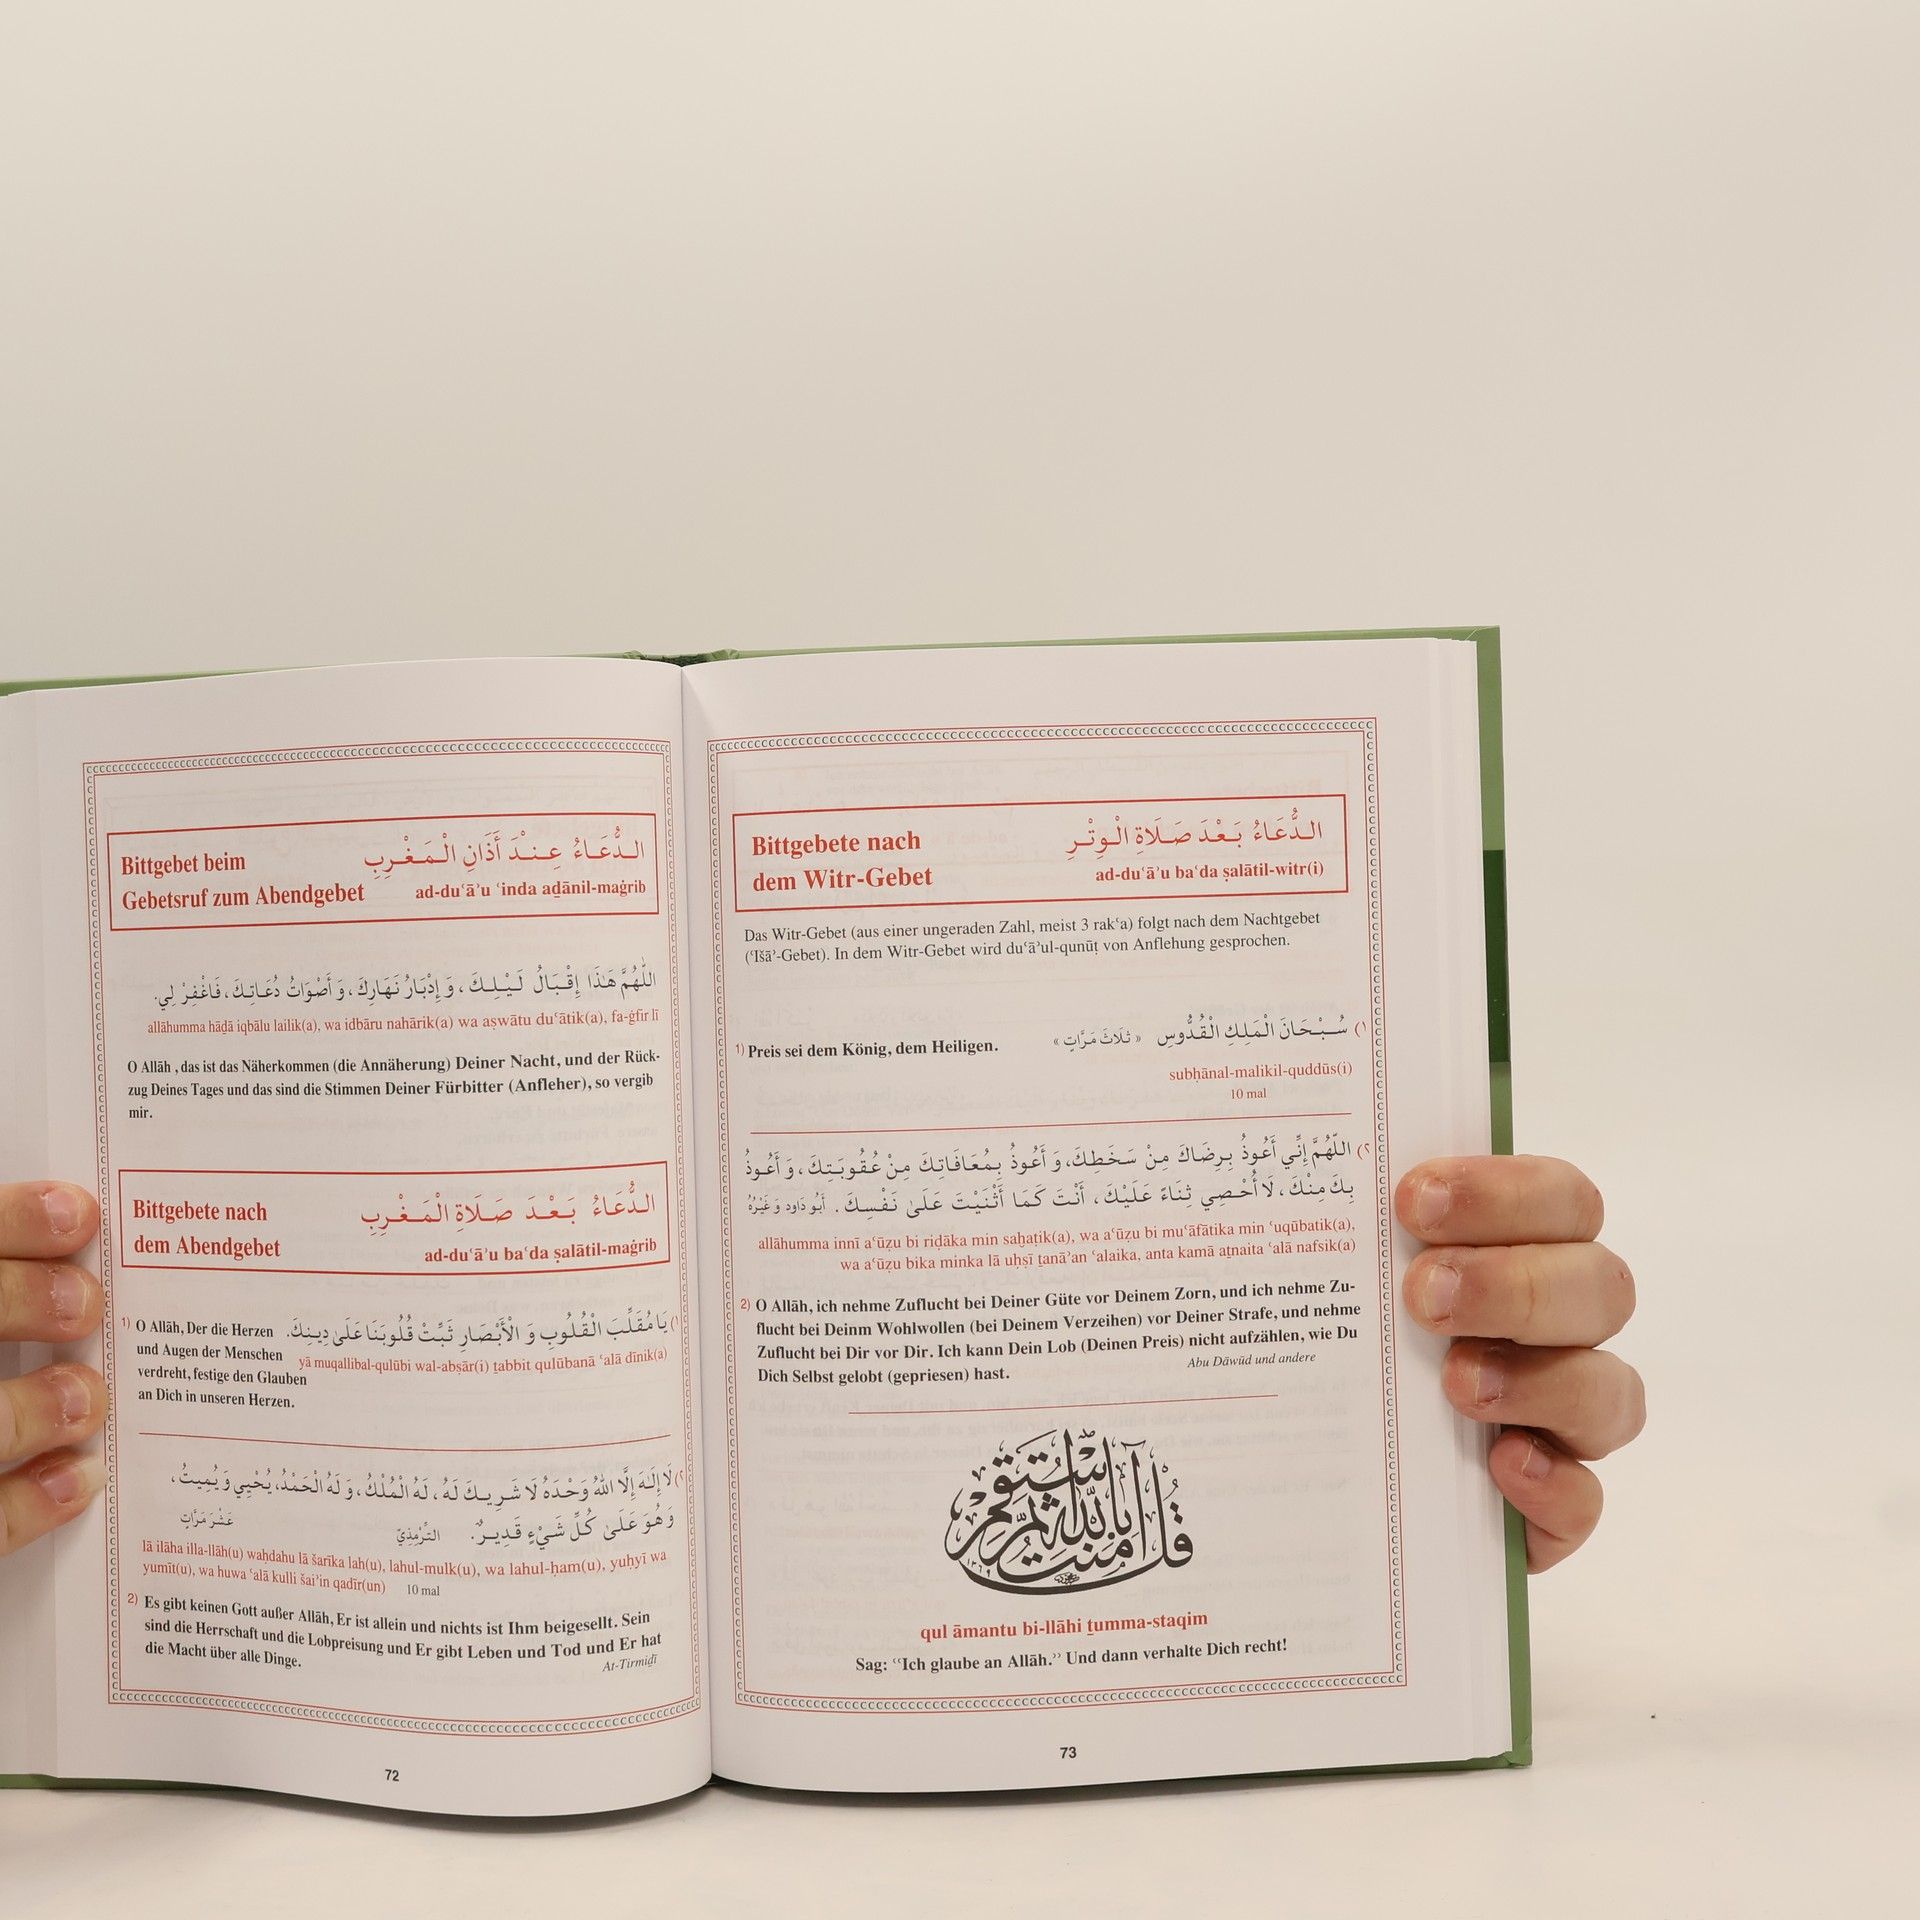 Bittgebet beim
Gebetsruf zum Abendgebet
الدُّعَاءُ عِنْدَ أَذَانِ الْمَغْرِبِ
ad-duʿāʾu ʿinda aḏānil-maġrib
اللّٰهُمَّ هَذَا إِقْبَالُ لَيْلِكَ، وَ إِدْبَارُ نَهَارِكَ، وَ أَصْوَاتُ دُعَاتِكَ، فَاغْفِرْ لِي.
allāhumma hāḏā iqbālu lailik(a), wa idbāru nahārik(a) wa aṣwātu duʿātik(a), fa-ġfir lī
O Allāh , das ist das Näherkommen (die Annäherung) Deiner Nacht, und der Rück-
zug Deines Tages und das sind die Stimmen Deiner Fürbitter (Anfleher), so vergib
mir.
Bittgebete nach
dem Abendgebet
الدُّعَاءُ بَعْدَ صَلَاةِ الْمَغْرِبِ
ad-duʿāʾu baʿda ṣalātil-maġrib
١) يَا مُقَلِّبَ الْقُلُوبِ وَ الْأَبْصَارِ ثَبِّتْ قُلُوبَنَا عَلَىٰ دِينِكَ.
yā muqallibal-qulūbi wal-abṣār(i) ṯabbit qulūbanā ʿalā dīnik(a)
1) O Allāh, Der die Herzen
und Augen der Menschen
verdreht, festige den Glauben
an Dich in unseren Herzen.
٢) لَا إِلٰهَ إِلَّا اللّٰهُ وَحْدَهُ لَا شَرِيكَ لَهُ، لَهُ الْمُلْكُ، وَ لَهُ الْحَمْدُ، يُحْيِي وَ يُمِيتُ،
وَ هُوَ عَلَىٰ كُلِّ شَيْءٍ قَدِيرٌ. التِّرْمِذِيّ عَشْرَ مَرَّاتٍ
lā ilāha illa-llāh(u) waḥdahu lā šarīka lah(u), lahul-mulk(u), wa lahul-ḥam(u), yuḥyī wa
yumīt(u), wa huwa ʿalā kulli šaiʾin qadīr(un) 10 mal
2) Es gibt keinen Gott außer Allāh, Er ist allein und nichts ist Ihm beigesellt. Sein
sind die Herrschaft und die Lobpreisung und Er gibt Leben und Tod und Er hat
die Macht über alle Dinge.
At-Tirmiḏī
72
Bittgebete nach
dem Witr-Gebet
الدُّعَاءُ بَعْدَ صَلَاةِ الْوِتْرِ
ad-duʿāʾu baʿda ṣalātil-witr(i)
Das Witr-Gebet (aus einer ungeraden Zahl, meist 3 rakʿa) folgt nach dem Nachtgebet
(ʿIšāʾ-Gebet). In dem Witr-Gebet wird duʿāʾul-qunūṭ von Anflehung gesprochen.
١) سُبْحَانَ الْمَلِكِ الْقُدُّوسِ « ثَلَاثَ مَرَّاتٍ »
1) Preis sei dem König, dem Heiligen.
subḥānal-malikil-quddūs(i)
10 mal
٢) اللّٰهُمَّ إِنِّي أَعُوذُ بِرِضَاكَ مِنْ سَخَطِكَ، وَ أَعُوذُ بِمُعَافَاتِكَ مِنْ عُقُوبَتِكَ، وَ أَعُوذُ
بِكَ مِنْكَ، لَا أُحْصِي ثِنَاءً عَلَيْكَ، أَنْتَ كَمَا أَثْنَيْتَ عَلَىٰ نَفْسِكَ. أَبُو دَاود وَ غَيْرُهُ
allāhumma innī aʿūẓu bi riḍāka min saḥaṭik(a), wa aʿūẓu bi muʿāfātika min ʿuqūbatik(a),
wa aʿūẓu bika minka lā uḥṣī ṯanāʾan ʿalaika, anta kamā aṯnaita ʿalā nafsik(a)
2) O Allāh, ich nehme Zuflucht bei Deiner Güte vor Deinem Zorn, und ich nehme Zu-
flucht bei Deinm Wohlwollen (bei Deinem Verzeihen) vor Deiner Strafe, und nehme
Zuflucht bei Dir vor Dir. Ich kann Dein Lob (Deinen Preis) nicht aufzählen, wie Du
Dich Selbst gelobt (gepriesen) hast.
Abu Dāwūd und andere
قُلْ آمَنْتُ بِاللّٰهِ ثُمَّ اسْتَقِمْ
qul āmantu bi-llāhi ṯumma-staqim
Sag: “Ich glaube an Allāh.” Und dann verhalte Dich recht!
73